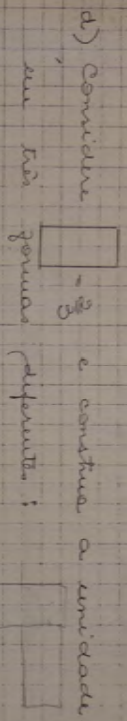 d) Considere = 2/3 e construa a unidade
em três formas diferentes: